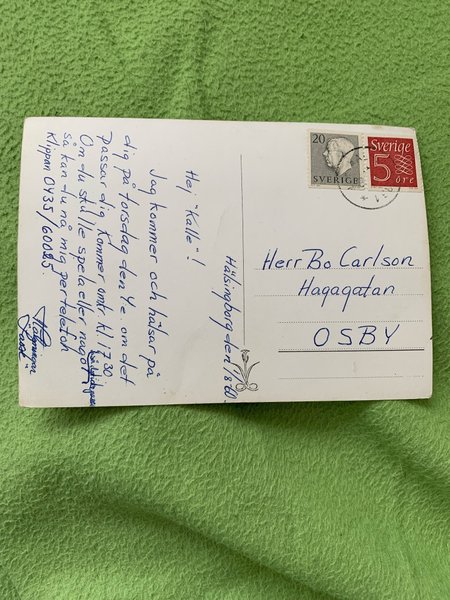 Hälsingborg den 1/8 60.
Hej "Kalle"!
Jag kommer och hälsar på
dig på torsdag den 4e om det
passar dig. Kommer omkr kl 17.30
Om du skulle spela eller något
så kan du nå mig per telefon
Klippan 0435/60025
Hälsningar
Lasse
20
SVERIGE
Sverige
5
öre
Herr Bo Carlson
Hagagatan
OSBY